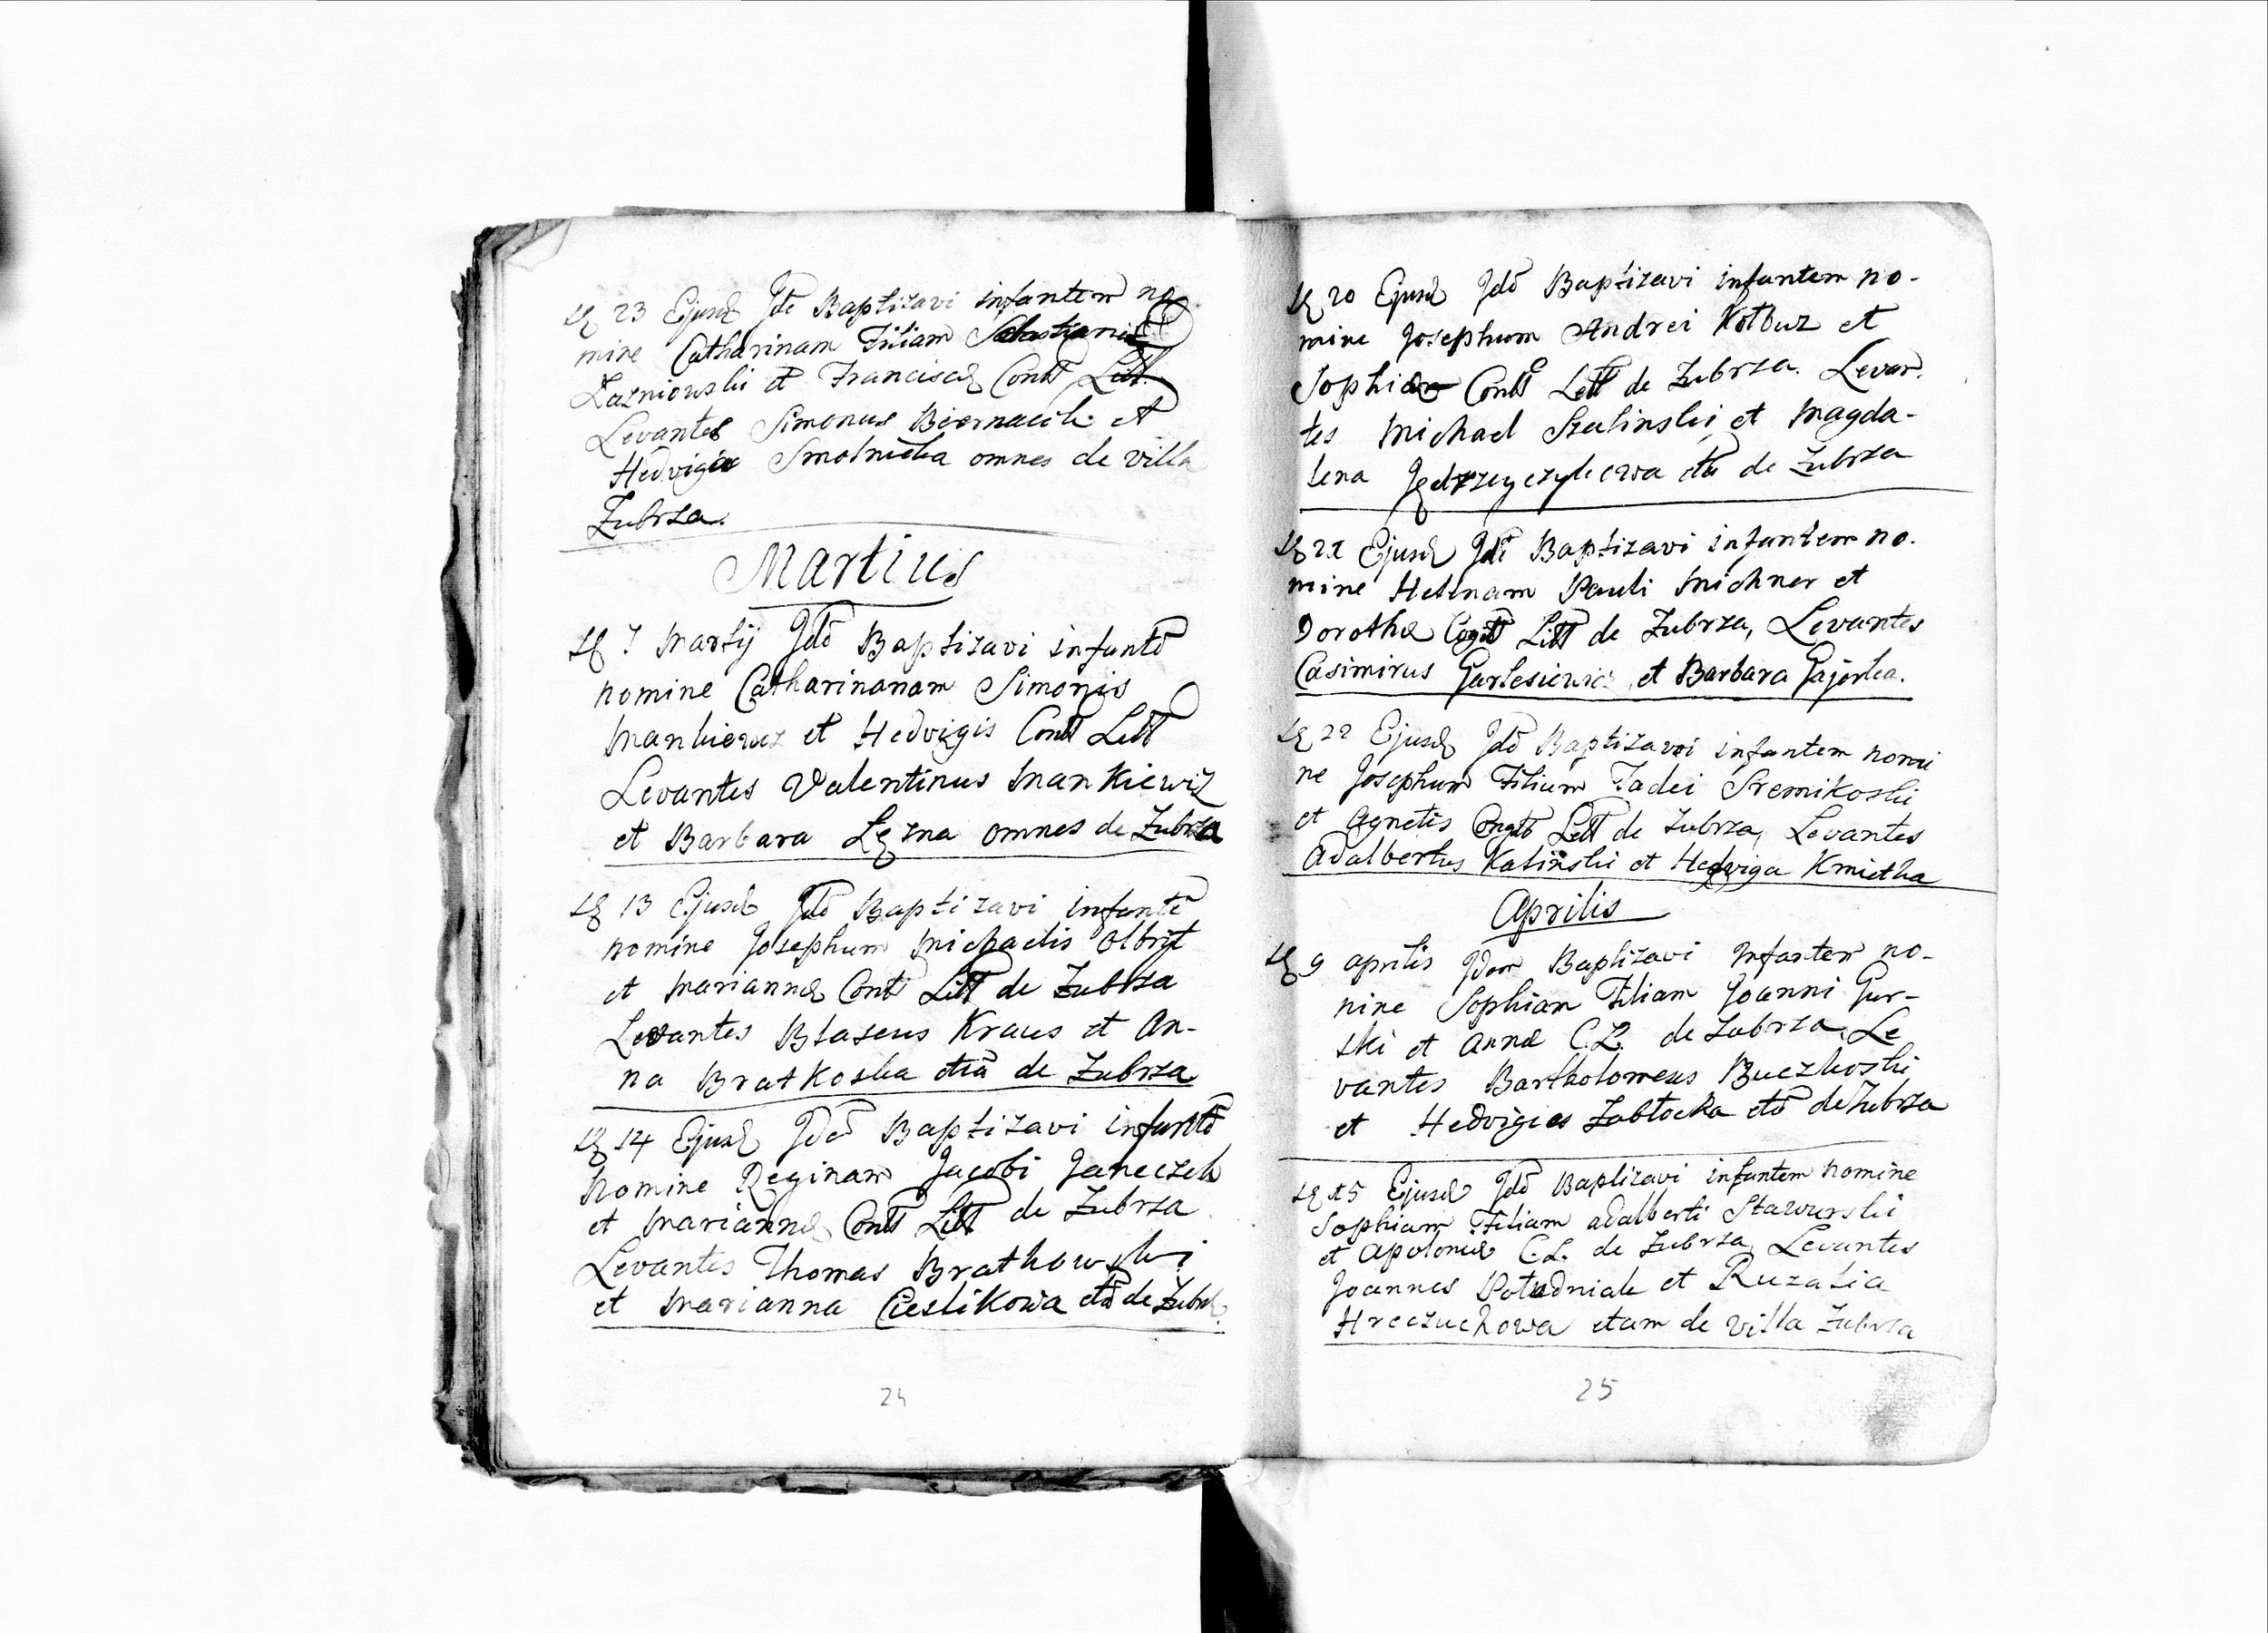 23 Ejusd Jdē Baptizavi infantem no-
mine Catharinam Filiam Sebastiani
Lazniowski et Francisca Contt Litt.
Levantes Simonus Biernacik et
Hedvigis Smotnicka omnes de villa
Zubrza.
Martius
7 Martij Jdē Baptizavi infantē
nomine Catharinanam Simonis
Mankiewicz et Hedvigis Contt Litt
Levantes Valentinus Mankiewiz
et Barbara Lęzna omnes de Zubrza
13 Ejusd Jdē Baptizavi infantē
nomine Josephum Michaelis Olbryt
et Mariannæ Contt Litt de Zubrza
Levantes Blaseus Kraus et An-
na Bratkoska etiā de Zubrza
14 Ejusd Jdē Baptizavi infantē
Nomine Reginam Jacobi Janeczek
et Mariannæ Contt Litt de Zubrza
Levantes Thomas Bratkowski
et Marianna Cieslikowa etā de Zubrz.
24
20 Ejusd Jdē Baptizavi infantem no-
mine Josephum Andrei Kotbuz et
Sophiæ Contt Litt de Zubrza. Levan-
tes Michael Szalinski et Magda-
lena Jędrzeyczykowa etā de Zubrza
21 Ejusd Jdē Baptizavi infantem no-
mine Helenam Pauli Michner et
Dorothæ Cogtt Litt de Zubrza, Levantes
Casimirus et Barbara Gajorka.
22 Ejusd Jdē Baptizavi infantem nomi
ne Josephum Filium Tadei Sremikoski
et Agnetis Congtt Litt de Zubrza, Levantes
Adalbertus Kalinski et Hedviga Kmietka
Aprilis
9 Aprilis Jdem Baptizavi Infantem no-
mine Sophiam Filiam Joanni Gur-
ski et Annæ C.L. de Zubrza, Le
vantes Bartholomeus Buczkoski
et Hedvigies Zabłocka etā de Zubrza
15 Ejusd Jdē Baptizavi infantem nomine
Sophiam Filiam Adalberti Stawurski
et Apoloniæ C.L. de Zubrza, Levantes
Joannes Potudniak et Ruzalia
Hreczuchowa etam de Villa Zubrza
25